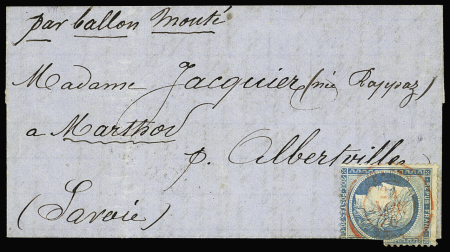 par ballon monté
Madame Jacquier (née Rappaz)
a Marthod
p. Albertville
(Savoie)